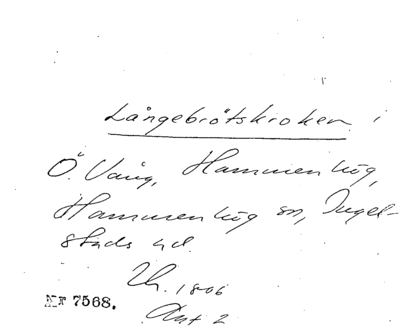 Långebrötskroken i
Ö. Vång, Hammenhög,
Hammenhög sn, Ingel-
stads hd.
Uh. 1806
Akt 2
Nr 7568.